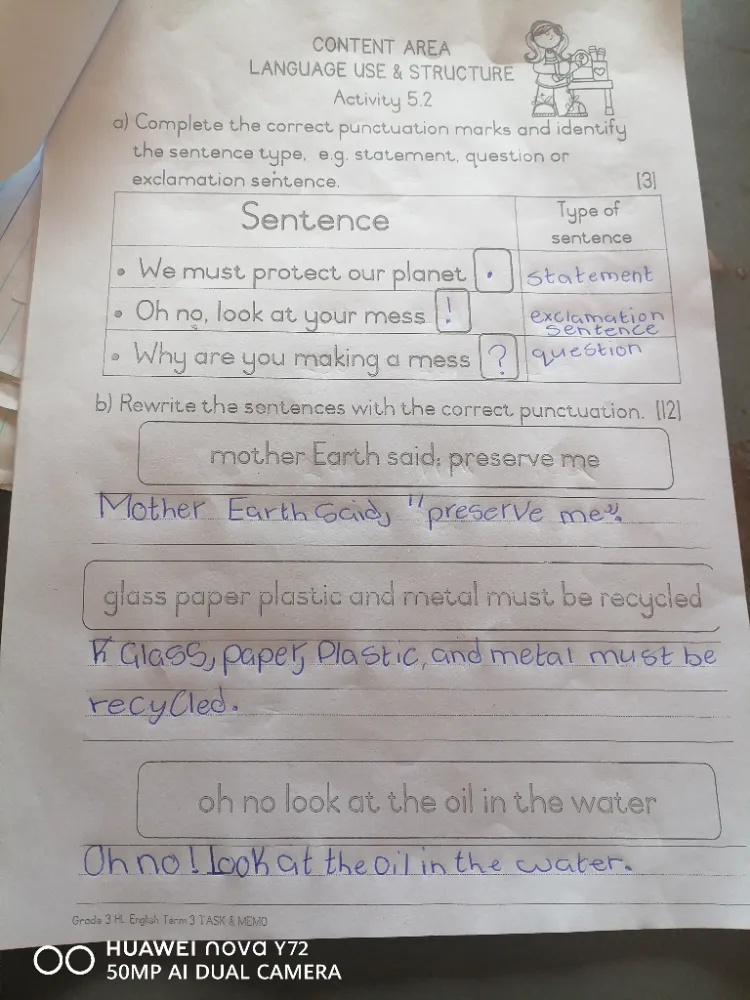 CONTENT AREA
LANGUAGE USE & STRUCTURE
Activity 5.2
a) Complete the correct punctuation marks and identify
the sentence type, e.g. statement, question or
exclamation sentence. [3]
Sentence Type of
sentence
• We must protect our planet . statement
• Oh no, look at your mess ! exclamation
sentence
• Why are you making a mess ? question
b) Rewrite the sentences with the correct punctuation. [12]
mother Earth said: preserve me
Mother Earth said, "preserve me".
glass paper plastic and metal must be recycled
Glass, paper, Plastic, and metal must be
recycled.
oh no look at the oil in the water
Oh no! look at the oil in the water.
Grade 3 HL English Term 3 TASK & MEMO
HUAWEI nova Y72
50MP AI DUAL CAMERA